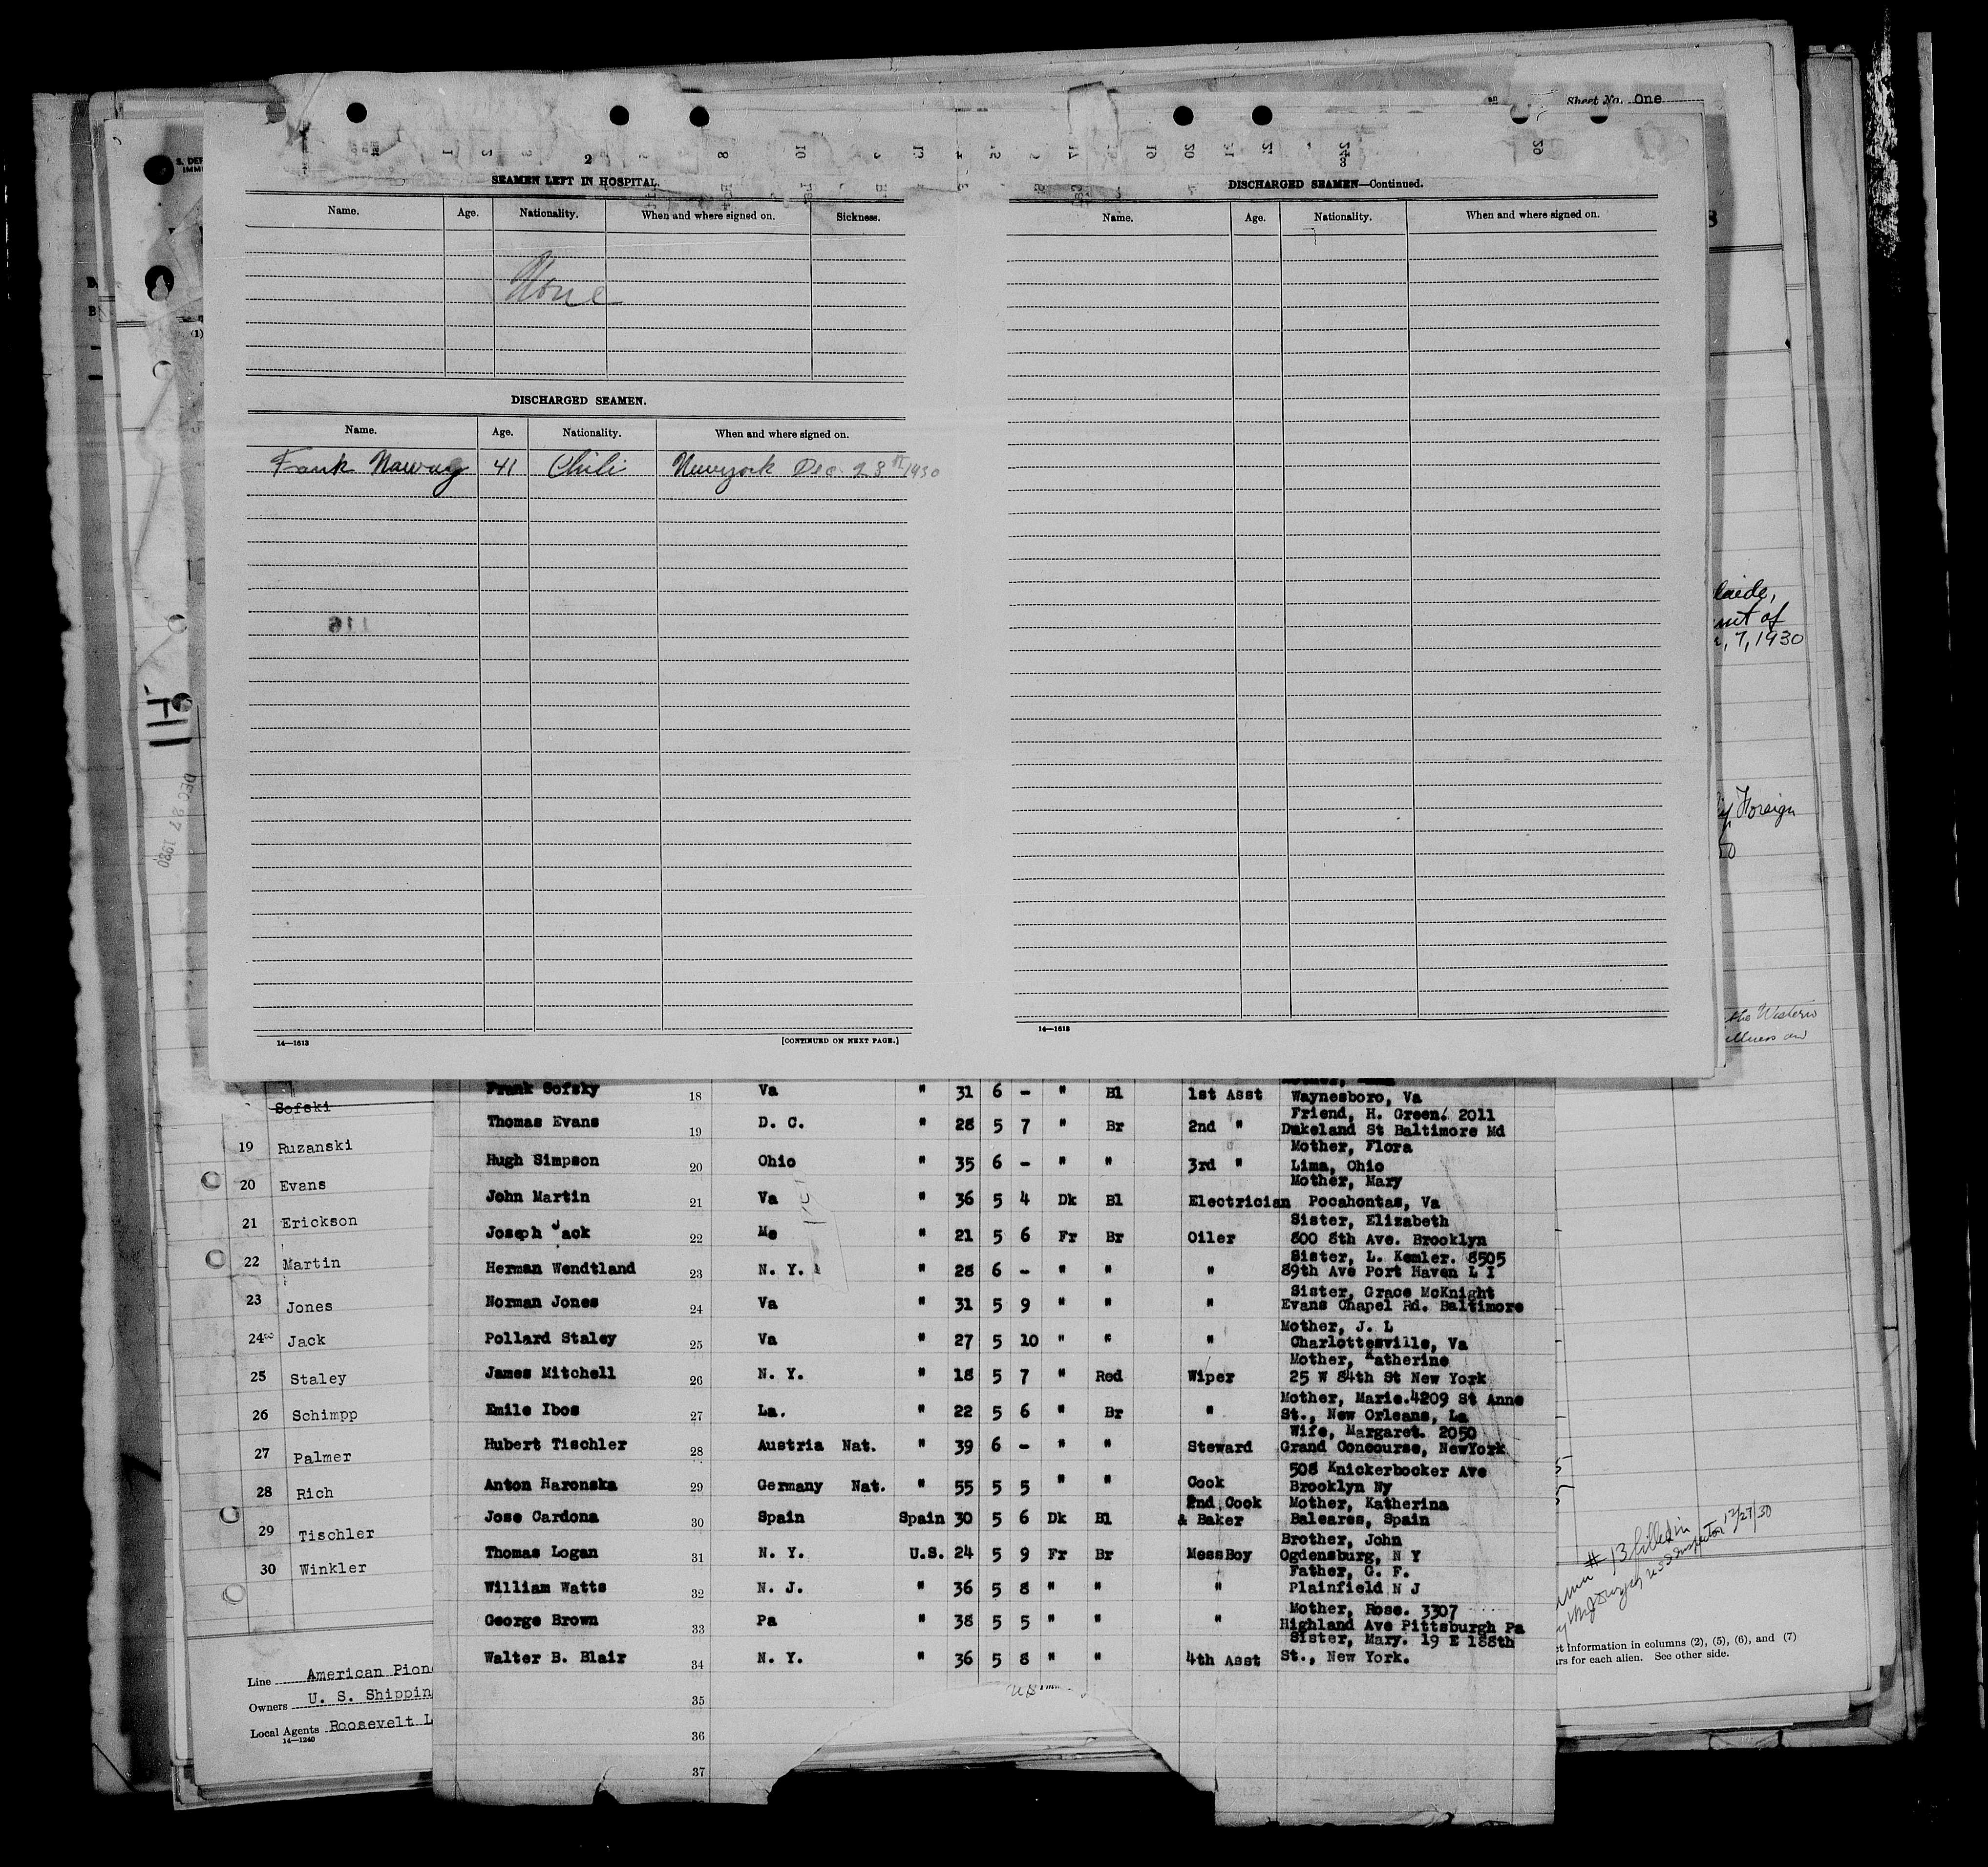 Sheet No. One
2
SEAMEN LEFT IN HOSPITAL.
Name. Age. Nationality. When and where signed on. Sickness.
None
DISCHARGED SEAMEN.
Name. Age. Nationality. When and where signed on.
Frank 41 Chili Newyork Dec 28 1930
116
14—1613 [CONTINUED ON NEXT PAGE.]
DISCHARGED SEAMEN—Continued.
Name. Age. Nationality. When and where signed on.
14—1613
7, 1930
Foreign
the Western
DEC 27 1930
Frank Sofsky 18 Va " 31 6 - " Bl 1st Asst Waynesboro, Va
Thomas Evans 19 D. C. " 28 5 7 " Br 2nd " Friend, H. Green. 2011
Dukeland St Baltimore Md
Hugh Simpson 20 Ohio " 35 6 - " " 3rd " Mother, Flora
Lima, Ohio
John Martin 21 Va " 36 5 4 Dk Bl Electrician Mother, Mary
Pocahontas, Va
Joseph Jack 22 Me " 21 5 6 Fr Br Oiler Sister, Elizabeth
800 8th Ave. Brooklyn
Herman Wendtland 23 N. Y. " 28 6 - " " " Sister, L. Kemler. 8505
89th Ave Port Haven L I
Norman Jones 24 Va " 31 5 9 " " " Sister, Grace McKnight
Evans Chapel Rd. Baltimore
Pollard Staley 25 Va " 27 5 10 " " " Mother, J. L
Charlottesville, Va
James Mitchell 26 N. Y. " 18 5 7 " Red Wiper Mother, Katherine
25 W 84th St New York
Emile Ibos 27 La. " 22 5 6 " Br " Mother, Marie.4209 St Anne
St., New Orleans, La
Hubert Tischler 28 Austria Nat. " 39 6 - " " Steward Wife, Margaret. 2050
Grand Concourse, NewYork
Anton Haronska 29 Germany Nat. " 55 5 5 " " Cook 508 Knickerbocker Ave
Brooklyn Ny
Jose Cardona 30 Spain Spain 30 5 6 Dk Bl 2nd Cook & Baker Mother, Katherina
Baleares, Spain
Thomas Logan 31 N. Y. U.S. 24 5 9 Fr Br MessBoy Brother, John
Ogdensburg, N Y
William Watts 32 N. J. " 36 5 8 " " " Father, G. F.
Plainfield N J
George Brown 33 Pa " 38 5 5 " " " Mother, Rose. 3307
Highland Ave Pittsburgh Pa
Walter B. Blair 34 N. Y. " 36 5 8 " " 4th Asst Sister, Mary. 19 E 188th
St., New York.
35
36
37
Sofski
19 Ruzanski
20 Evans
21 Erickson
22 Martin
23 Jones
24 Jack
25 Staley
26 Schimpp
27 Palmer
28 Rich
29 Tischler
30 Winkler
Line American Pion
Owners U. S. Shippin
Local Agents Roosevelt L
14—1240
# 13 filled in
Inspector 12/27/30
Information in columns (2), (5), (6), and (7)
for each alien. See other side.